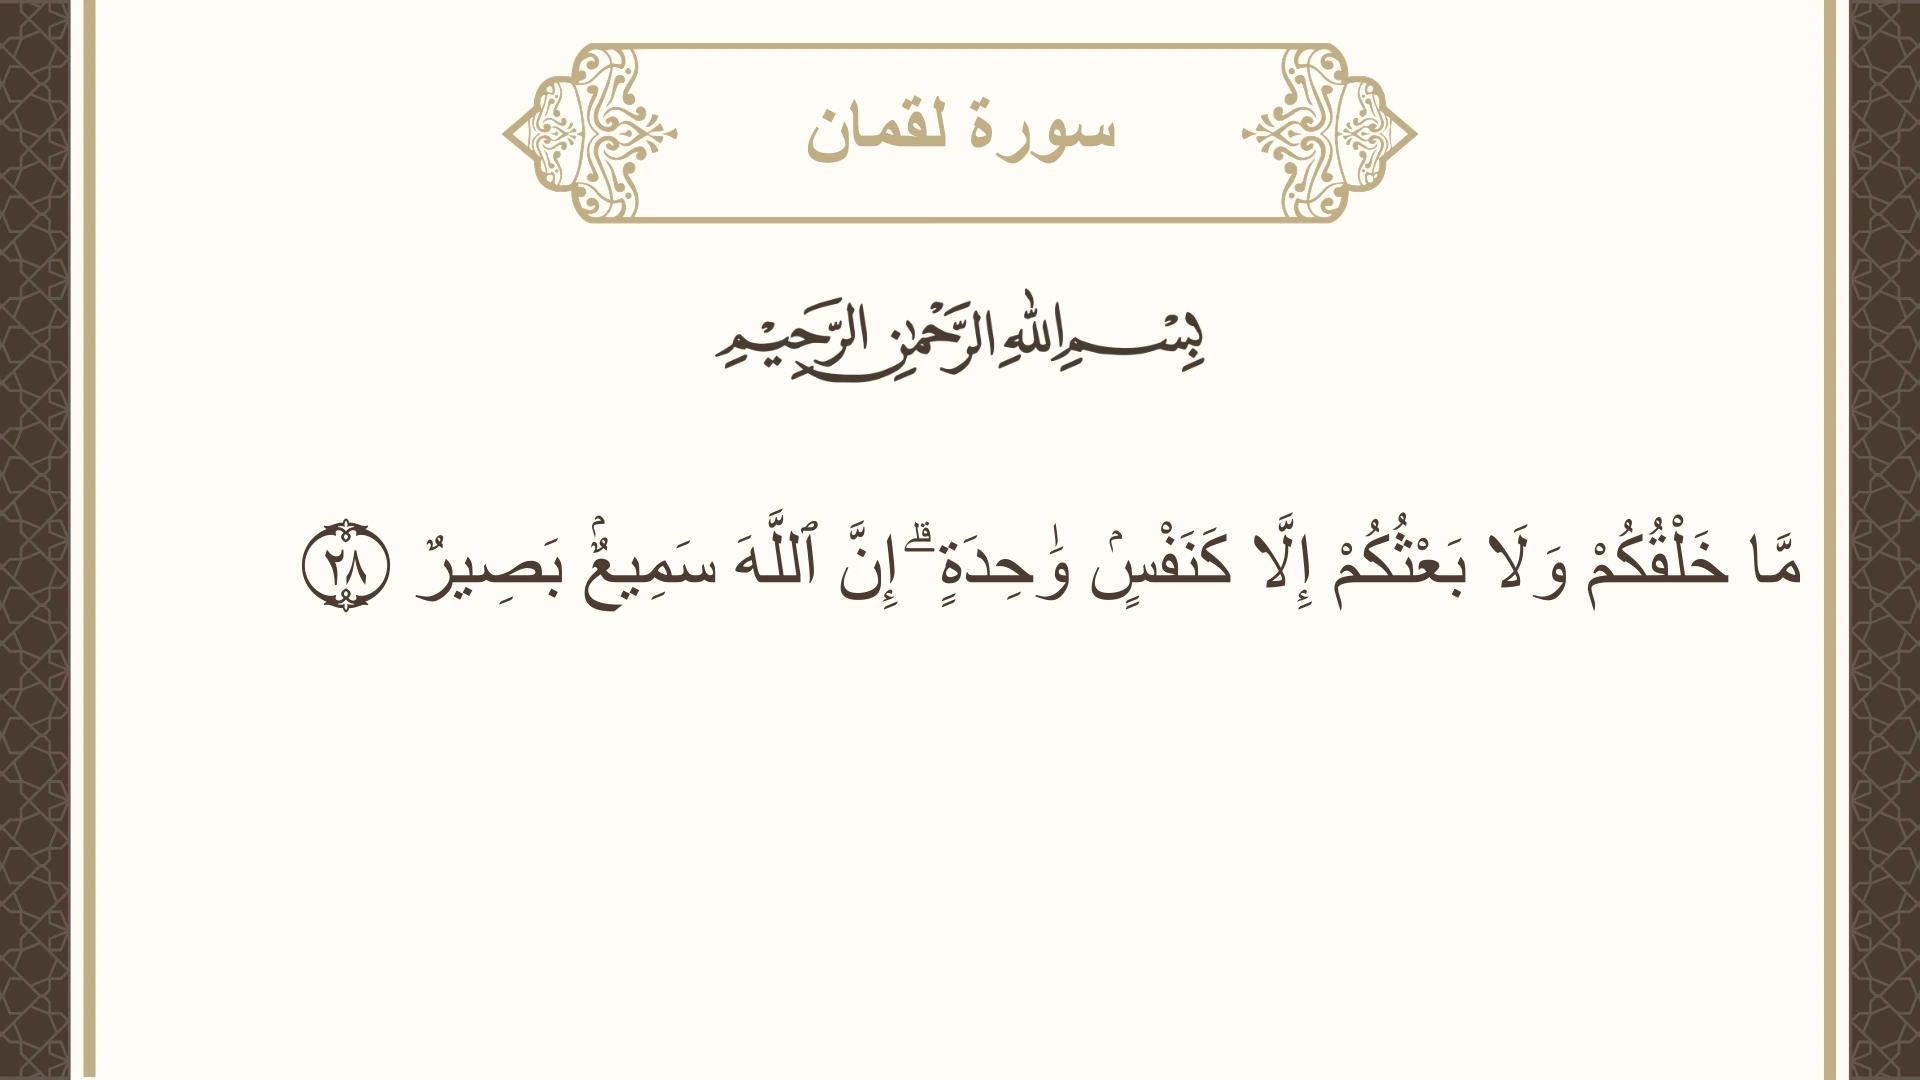 سورة لقمان
بِسْمِ اللهِ الرَّحْمٰنِ الرَّحِيْمِ
مَّا خَلْقُكُمْ وَلَا بَعْثُكُمْ إِلَّا كَنَفْسٍۢ وَٰحِدَةٍ ۗ إِنَّ ٱللَّهَ سَمِيعٌۢ بَصِيرٌ ٢٨